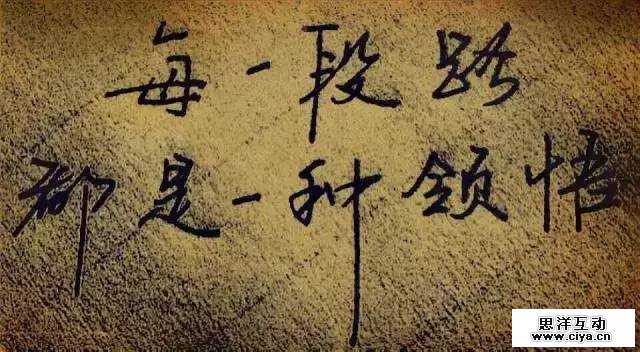 每一段路
都是一种领悟
思洋互动
www.ciya.cn